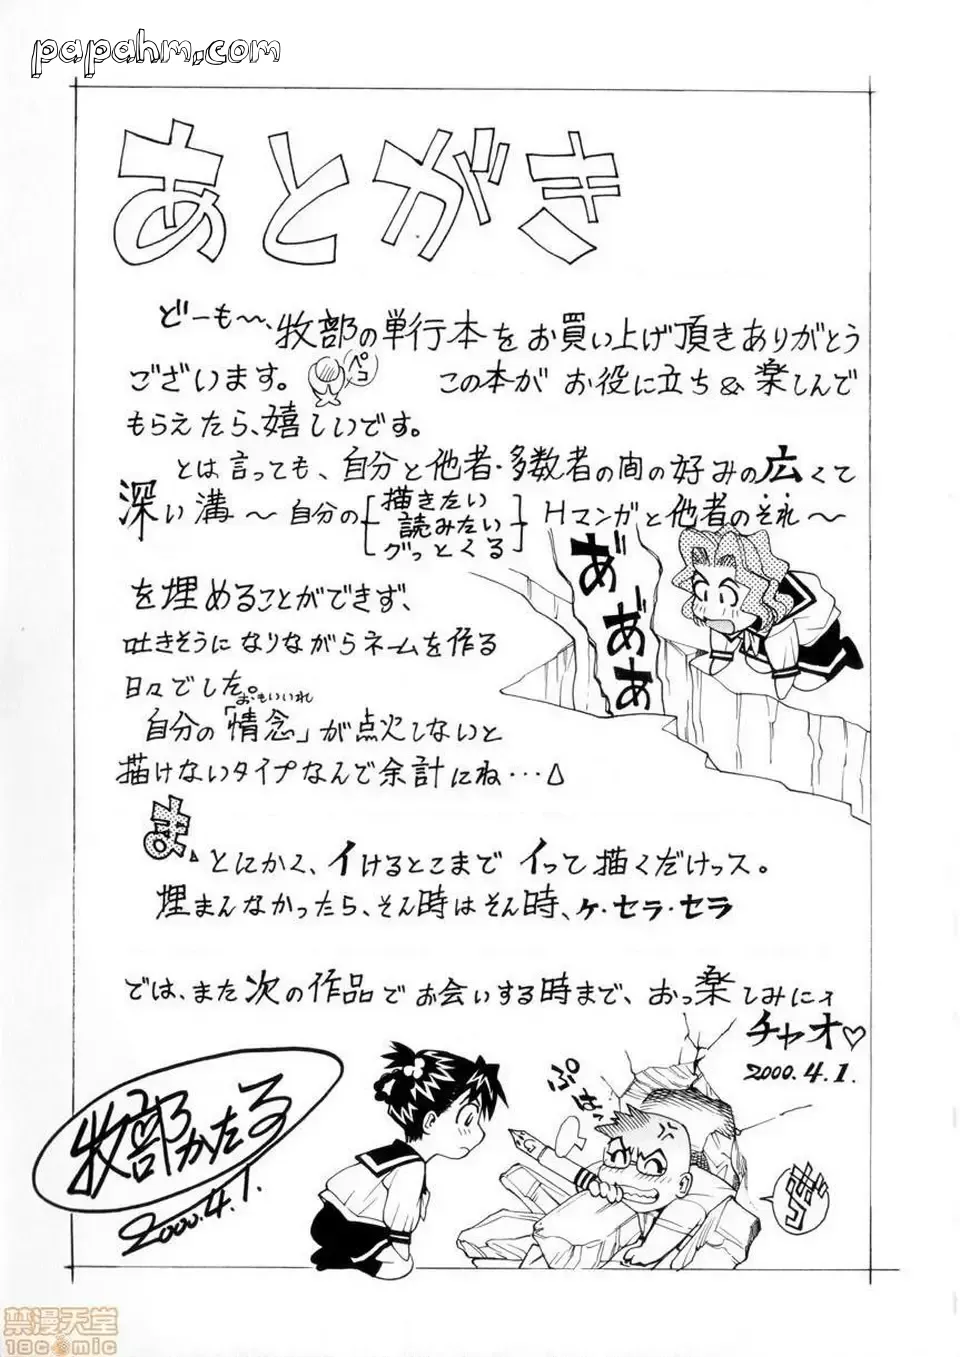 papahm.com
あとがき
どーも〜、牧部の単行本をお買い上げ頂きありがとう
ございます。 ペコ この本が お役に立ち & 楽しんで
もらえたら、嬉しいです。
とは言っても、自分と他者・多数者の間の好みの広くて
深い溝〜自分の[描きたい
読みたい
グっとくる]Hマンガと他者のそれ〜
を埋めることができず、
吐きそうになりながらネームを作る
日々でした。
おもいいれ
自分の「情念」が点火しないと
描けないタイプなんで余計にね…
ま、とにかく、イけるとこまで イって描くだけっス。
埋まんなかったら、そん時はそん時、ケ・セラ・セラ
では、また次の作品でお会いする時まで、おっ楽しみにィ
チャオ♡
2000.4.1.
あ゛
あ゛あ゛
牧部かたる
2000.4.1.
ぷはっ
禁漫天堂
18comic